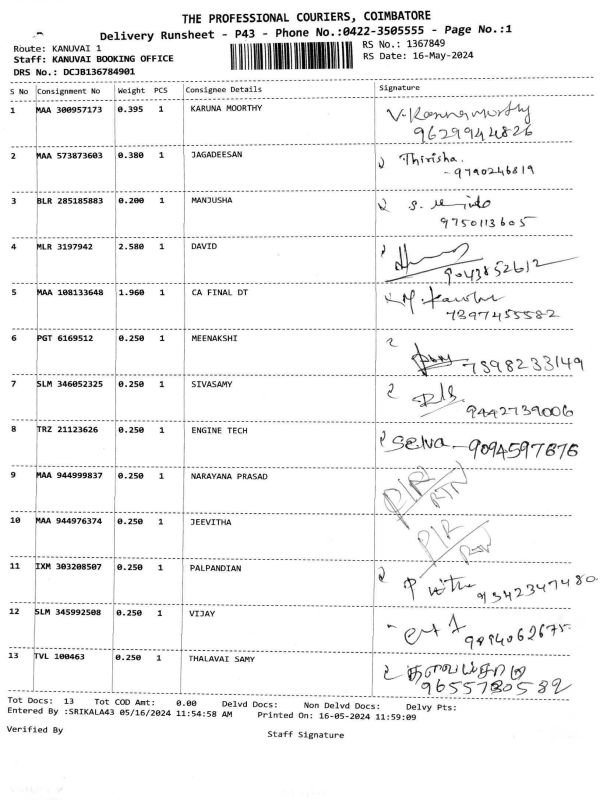 THE PROFESSIONAL COURIERS, COIMBATORE
Delivery Runsheet - P43 - Phone No.:0422-3505555 - Page No.:1
Route: KANUVAI 1
RS No.: 1367849
Staff: KANUVAI BOOKING OFFICE
RS Date: 16-May-2024
DRS No.: DCJB136784901
S No Consignment No Weight PCS Consignee Details Signature
1 MAA 300957173 0.395 1 KARUNA MOORTHY
9629944826
2 MAA 573873603 0.380 1 JAGADEESAN Thirisha.
-9790246819
3 BLR 285185883 0.200 1 MANJUSHA
9750113605
4 MLR 3197942 2.580 1 DAVID
9043852612
5 MAA 108133648 1.960 1 CA FINAL DT
7397455582
6 PGT 6169512 0.250 1 MEENAKSHI
7598233149
7 SLM 346052325 0.250 1 SIVASAMY
9442739006
8 TRZ 21123626 0.250 1 ENGINE TECH Selva - 9094597676
9 MAA 944999837 0.250 1 NARAYANA PRASAD
RTN
10 MAA 944976374 0.250 1 JEEVITHA
11 IXM 303208507 0.250 1 PALPANDIAN
9342347480
12 SLM 345992508 0.250 1 VIJAY
9894062675
13 TVL 100463 0.250 1 THALAVAI SAMY
9655780582
Tot Docs: 13 Tot COD Amt: 0.00 Delvd Docs: Non Delvd Docs: Delvy Pts:
Entered By :SRIKALA43 05/16/2024 11:54:58 AM Printed On: 16-05-2024 11:59:09
Verified By
Staff Signature